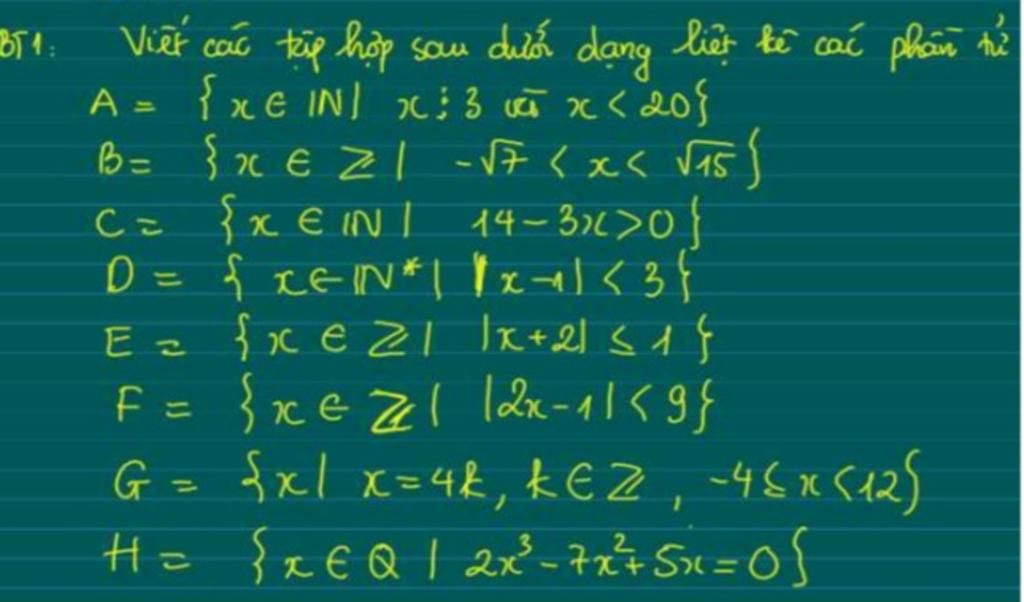 BT1: Viết các tập hợp sau dưới dạng liệt kê các phần tử
A = {x ∈ ℕ | x ⋮ 3 và x < 20}
B = {x ∈ ℤ | -√7 < x < √15}
C = {x ∈ ℕ | 14 - 3x > 0}
D = {x ∈ ℕ* | |x - 1| < 3}
E = {x ∈ ℤ | |x + 2| ≤ 1}
F = {x ∈ ℤ | |2x - 1| < 9}
G = {x | x = 4k, k ∈ ℤ, -4 ≤ x < 12}
H = {x ∈ Q | 2x³ - 7x² + 5x = 0}